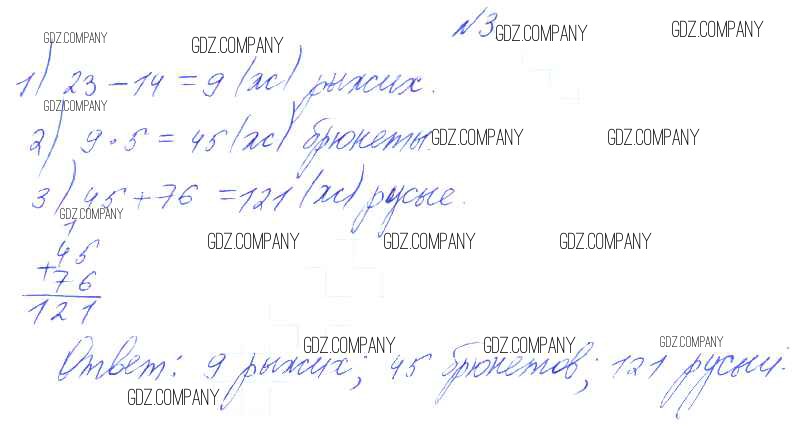 №3
GDZ.COMPANY GDZ.COMPANY GDZ.COMPANY GDZ.COMPANY
1) 23 - 14 = 9 (ж) рыжих.
GDZ.COMPANY
2) 9 · 5 = 45 (ж) брюнеты.
GDZ.COMPANY GDZ.COMPANY
3) 45 + 76 = 121 (ж) русые.
GDZ.COMPANY
1
45
GDZ.COMPANY GDZ.COMPANY GDZ.COMPANY
+76
121
GDZ.COMPANY GDZ.COMPANY GDZ.COMPANY
Ответ: 9 рыжих; 45 брюнетов; 121 русый.
GDZ.COMPANY GDZ.COMPANY